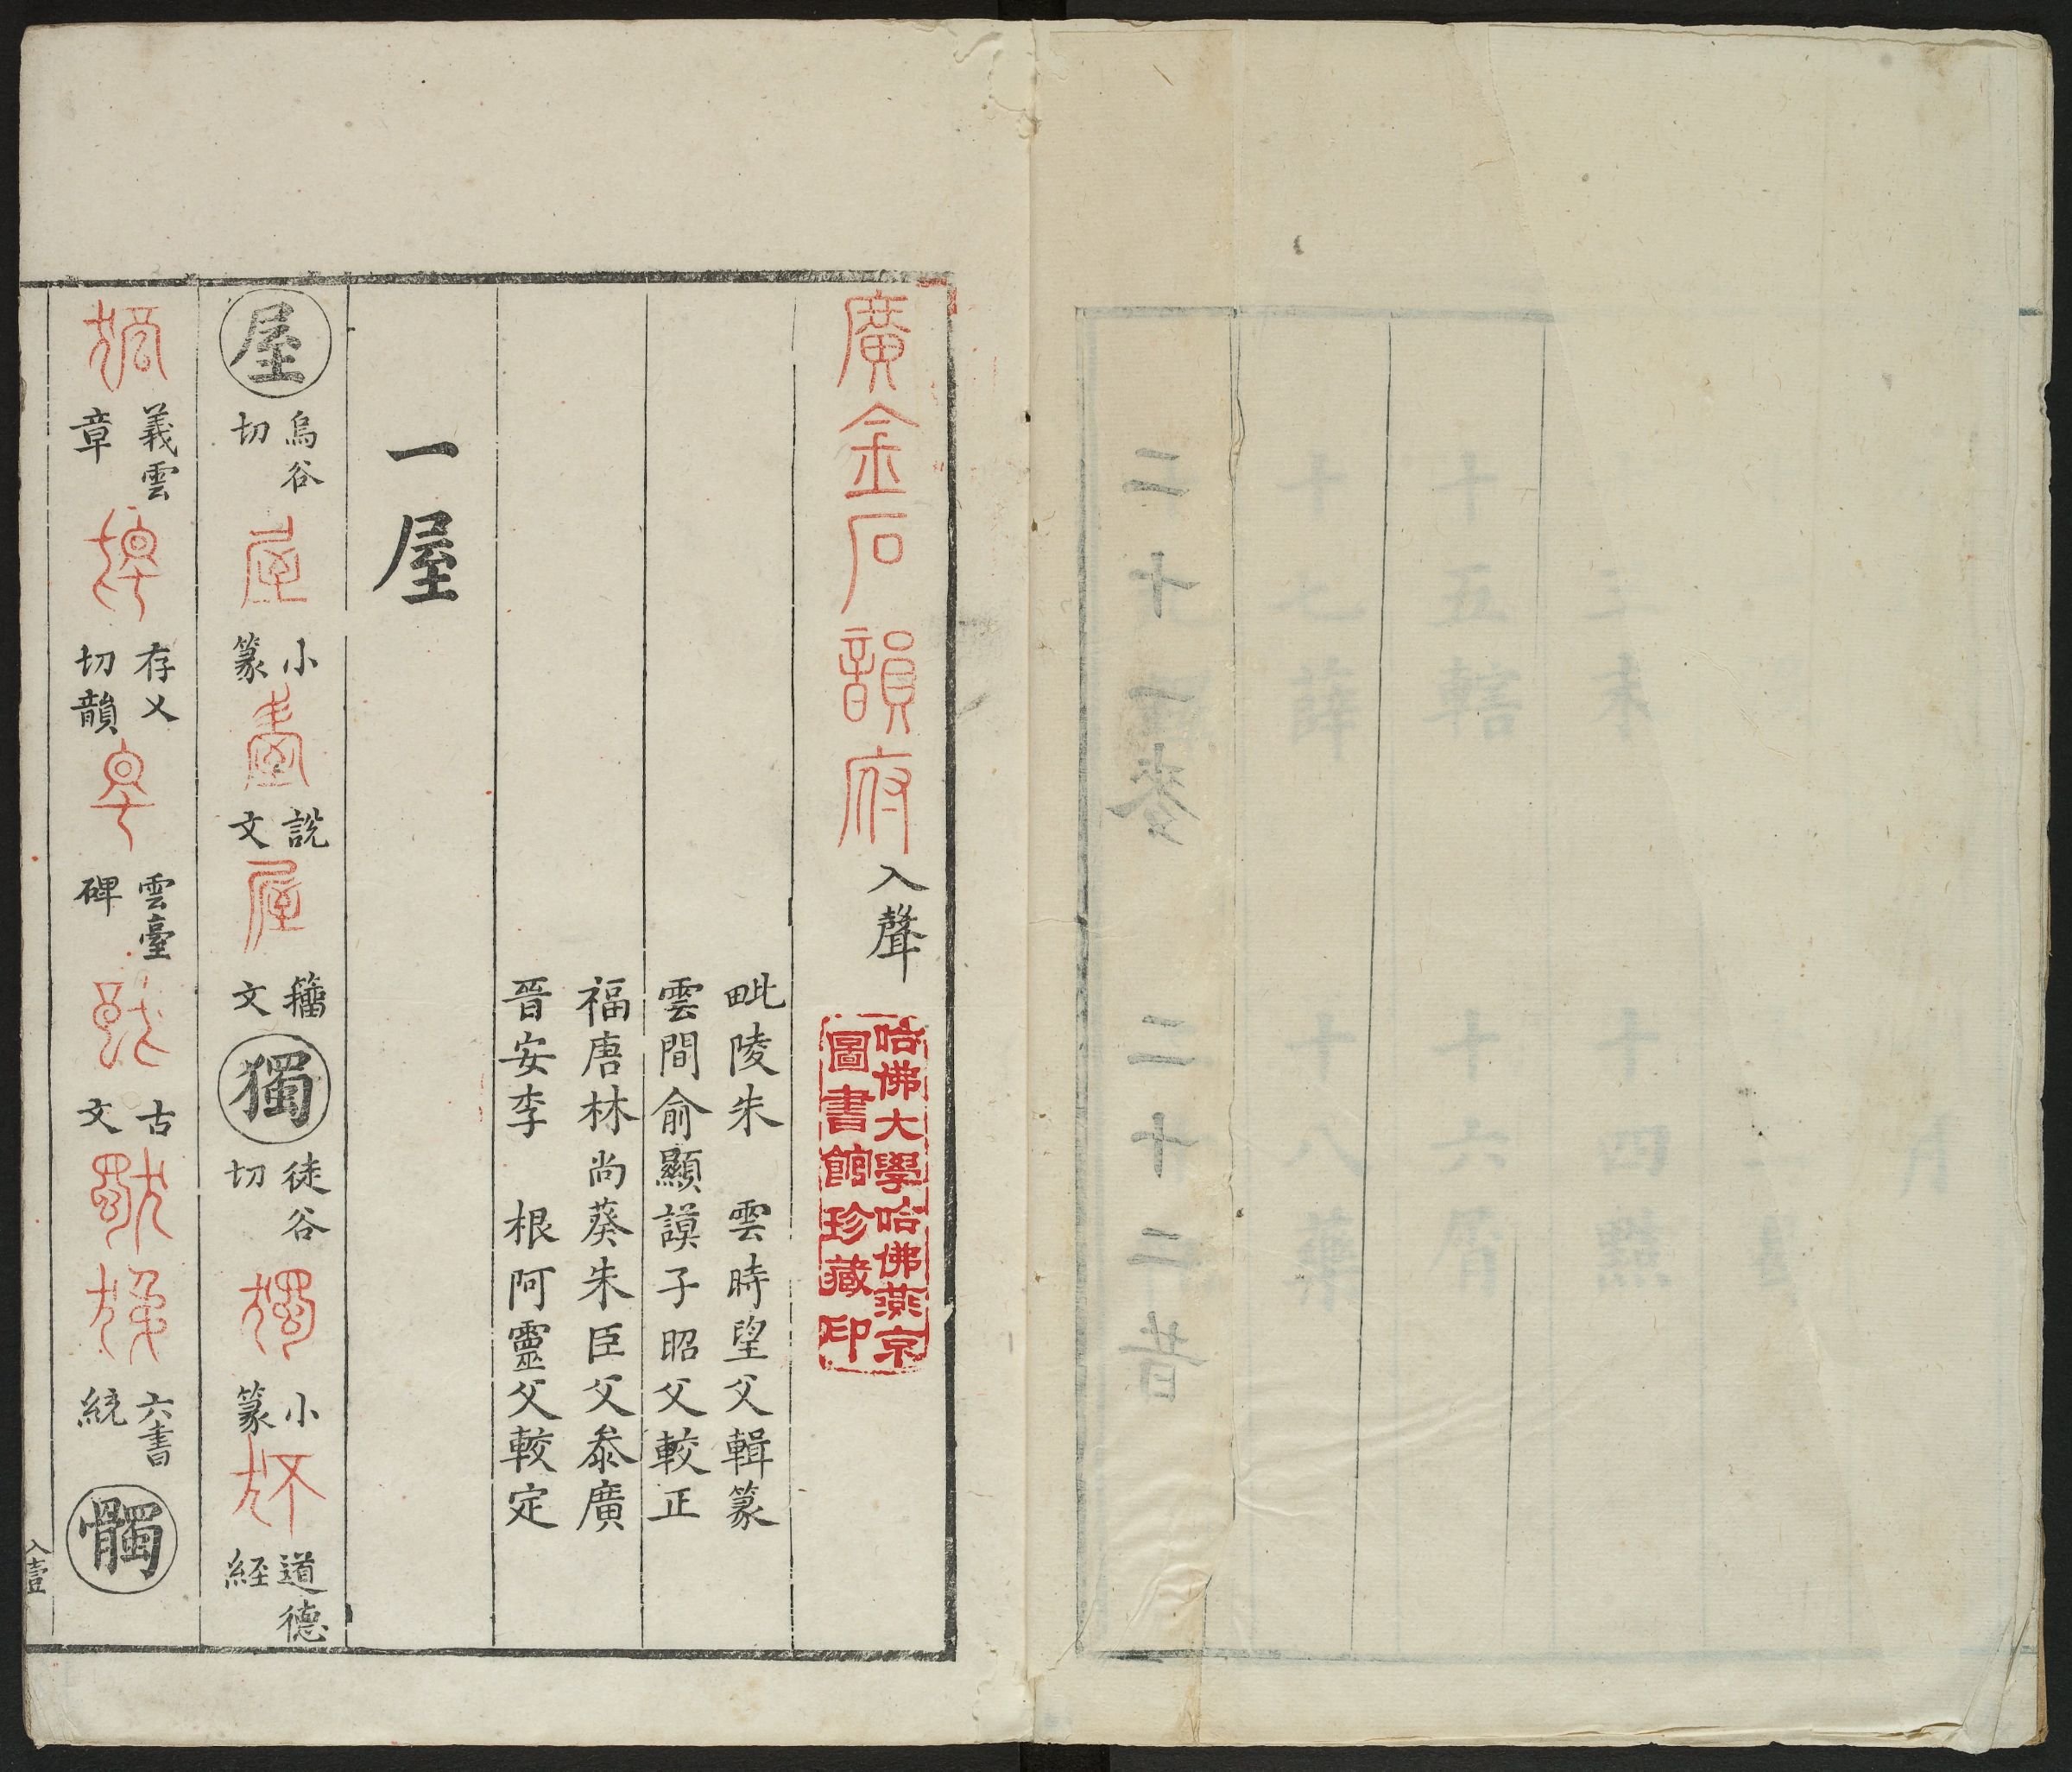 二十一麥 二十二昔
十七薛 十八藥
十五轄 十六屑
末 十四黠
廣金石韻府入聲
哈佛大學哈佛燕京
圖書館珍藏印
毗陵朱 雲時望父輯篆
雲間俞顯謨子昭父較正
福唐林尚葵朱臣父叅廣
晉安李 根阿靈父較定
一屋
屋 烏谷切 屋 小篆 說文 屋 籀文 獨 徒谷切 獨 小篆 道德経
義雲章 存乂切韻 雲臺碑 古文 六書統 髑
入壹